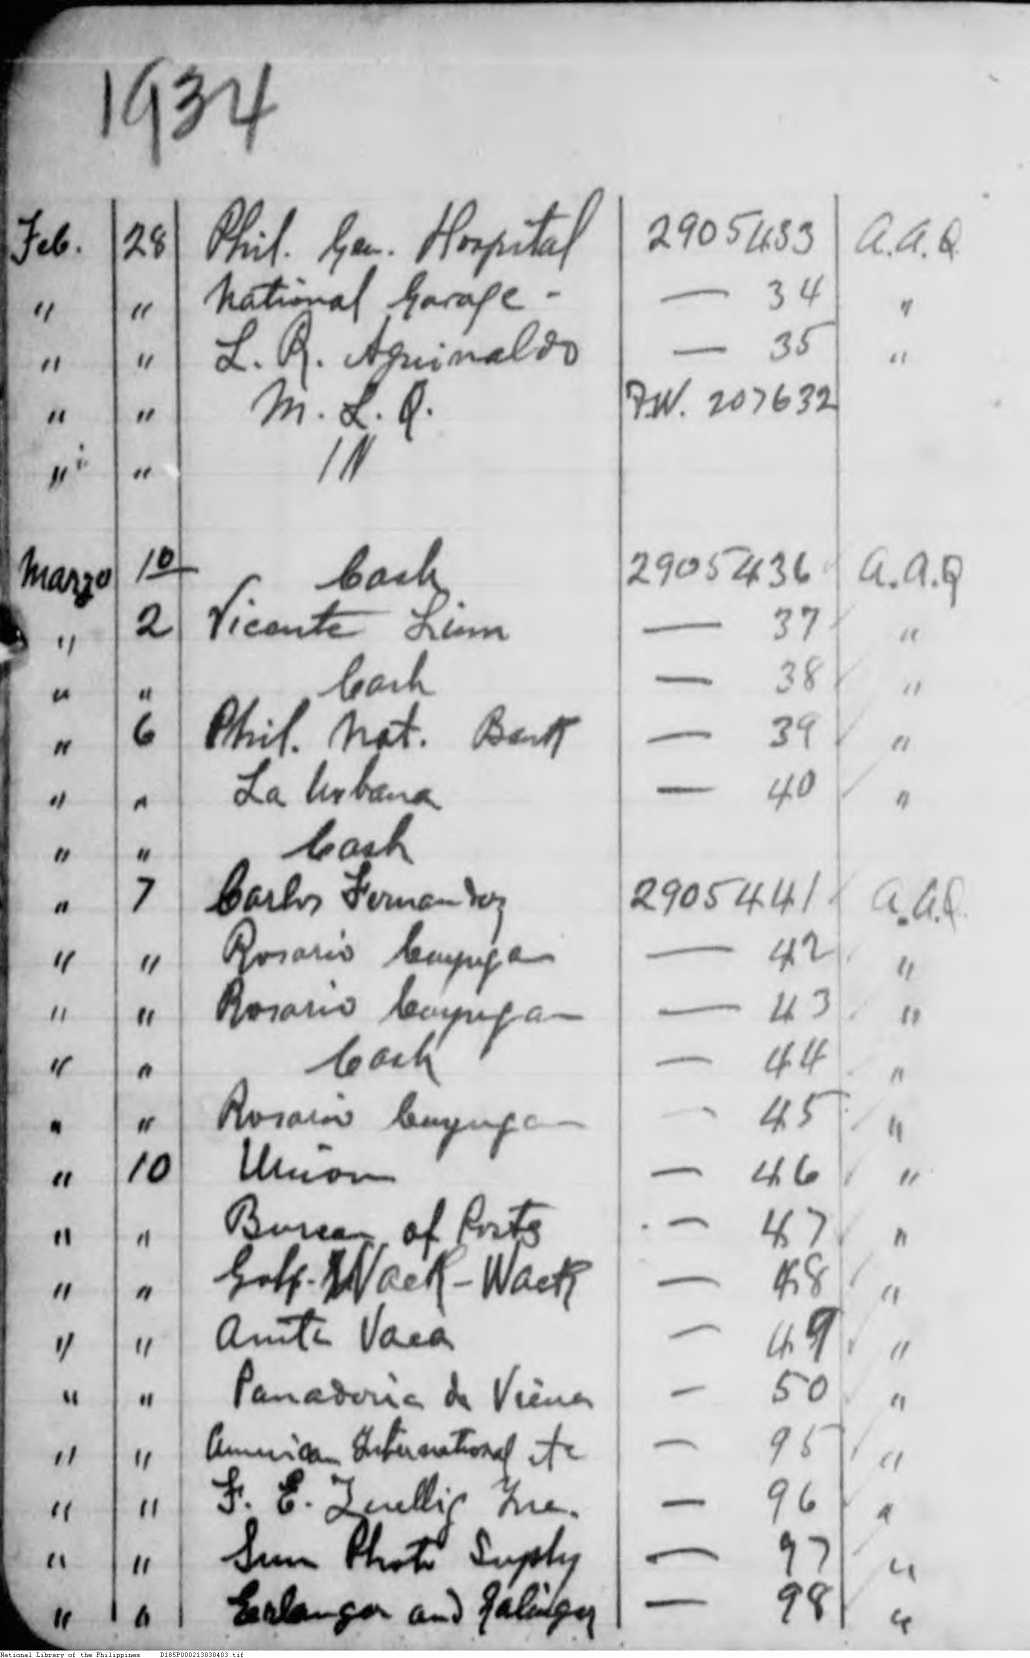 1934
Feb. 28 Phil. Gen. Hospital 2905433 A.A.Q.
" " National Garage - — 34 "
" " L. R. Aguinaldo — 35 "
" " M. L. Q. P.W. 207632
" " IN
Marzo 10 Cash 2905436 A.A.Q
" 2 Vicente Lim — 37 "
" " Cash — 38 "
" 6 Phil. Nat. Bank — 39 "
" " La Urbana — 40 "
" " Cash
" 7 Carlos Fernandez 2905441 A.A.Q.
" " Rosario Cuyugan — 42 "
" " Rosario Cuyugan — 43 "
" " Cash — 44 "
" " Rosario Cuyugan — 45 "
" 10 Union — 46 "
" " Bureau of Posts — 47 "
" " Golf - Wack - Wack — 48 "
" " Anita Vaca — 49 "
" " Panaderia de Viena — 50 "
" " American International etc — 95 "
" " F. E. Zuellig Inc. — 96 "
" " Sun Photo Supply — 97 "
" " Erlanger and Galinger — 98 "
National Library of the Philippines D185P000213030403.tif